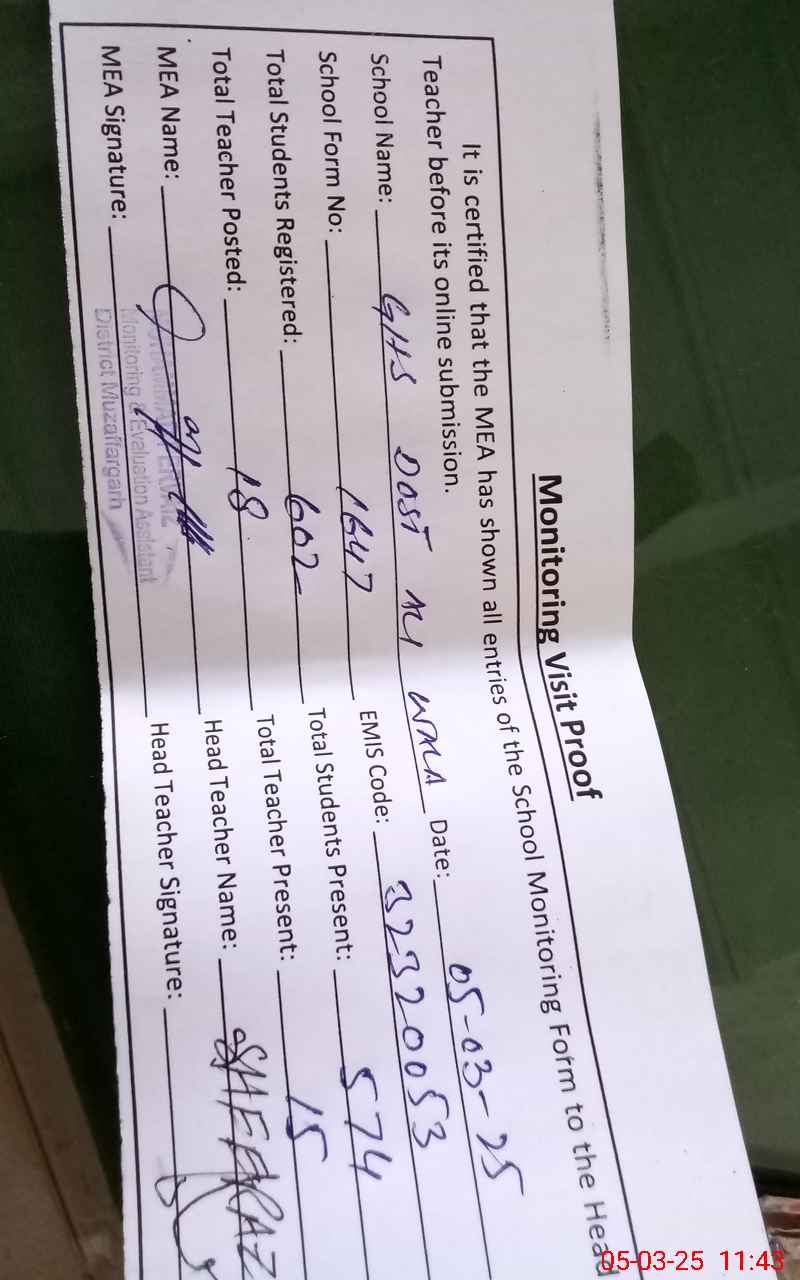 Monitoring Visit Proof
It is certified that the MEA has shown all entries of the School Monitoring Form to the Head
Teacher before its online submission.
School Name: GHS DOST ALI WALA Date: 05-03-25
School Form No: 1647 EMIS Code: 32320053
Total Students Registered: 602 Total Students Present: 574
Total Teacher Posted: 18 Total Teacher Present: 15
MEA Name: Head Teacher Name:
MEA Signature: Head Teacher Signature:
Monitoring & Evaluation Assistant
District Muzaffargarh
05-03-25 11:43